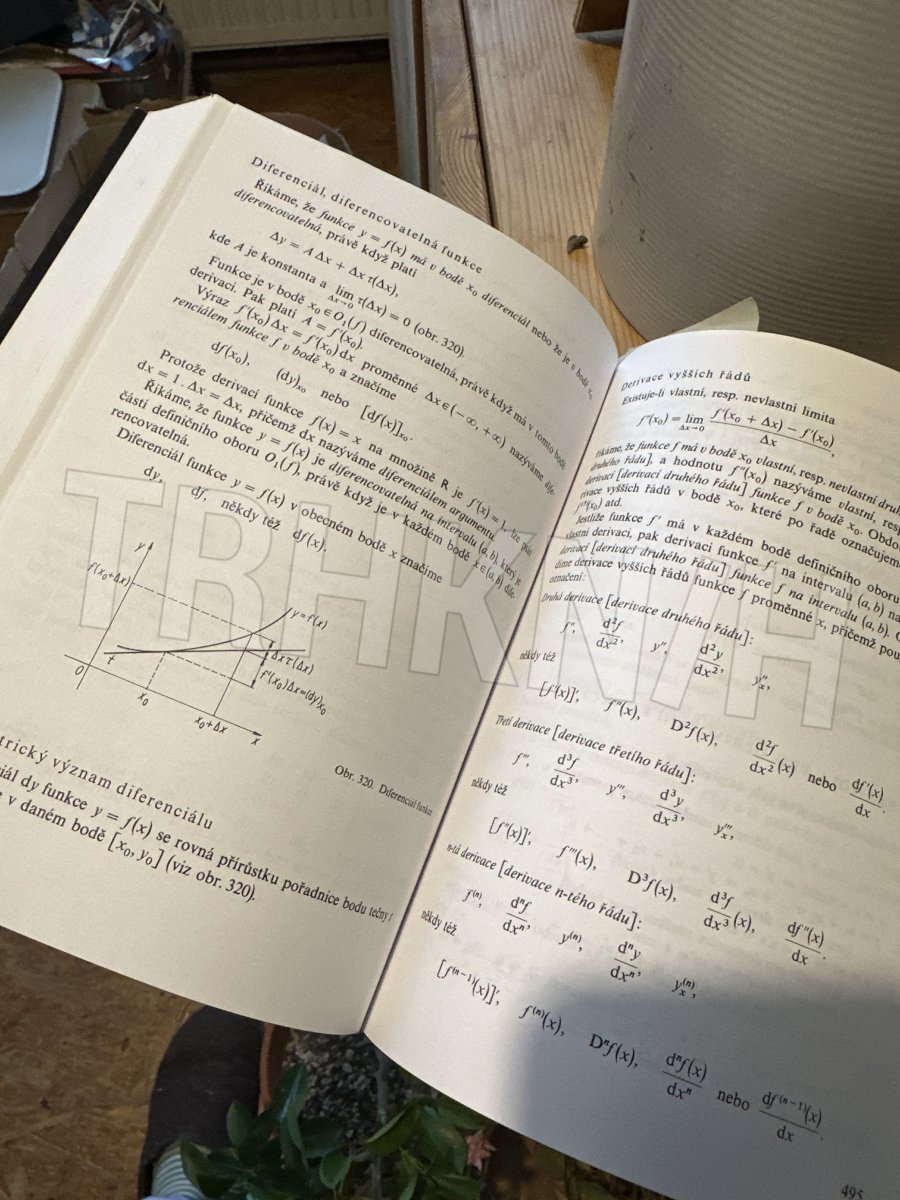 Diferenciál, diferencovatelná funkce
Říkáme, že funkce y = f(x) má v bodě x₀ diferenciál nebo že je v bodě x₀
diferencovatelná, právě když platí
Δy = A Δx + Δx τ(Δx),
kde A je konstanta a lim τ(Δx) = 0 (obr. 320).
Δx→0
Funkce je v bodě x₀ ∈ O₁(f) diferencovatelná, právě když má v tomto bodě
derivaci. Pak platí A = f′(x₀).
Výraz f′(x₀) Δx = f′(x₀) dx proměnné Δx ∈ (−∞, +∞) nazýváme dife-
renciálem funkce f v bodě x₀ a značíme
df(x₀), (dy)ₓ₀ nebo [df(x)]ₓ₀.
Protože derivací funkce f(x) = x na množině R je f′(x) = 1, lze psát
dx = 1 . Δx = Δx, přičemž dx nazýváme diferenciálem argumentu.
Říkáme, že funkce y = f(x) je diferencovatelná na intervalu (a, b), který je
částí definičního oboru O₁(f), právě když je v každém bodě x ∈ (a, b) dife-
rencovatelná.
Diferenciál funkce y = f(x) v obecném bodě x značíme
dy, df, někdy též df(x).
y
f(x₀+Δx)
y=f(x)
Δx τ(Δx)
f′(x₀)Δx=(dy)ₓ₀
t
0
x₀
x₀+Δx
x
Obr. 320. Diferenciál funkce
trický význam diferenciálu
iál dy funkce y = f(x) se rovná přírůstku pořadnice bodu tečny t
v daném bodě [x₀, y₀] (viz obr. 320).
Derivace vyšších řádů
Existuje-li vlastní, resp. nevlastní limita
f″(x₀) = lim f′(x₀ + Δx) − f′(x₀)
Δx→0 Δx ,
říkáme, že funkce f má v bodě x₀ vlastní, resp. nevlastní druh
druhého řádu], a hodnotu f″(x₀) nazýváme vlastní, resp
derivací [derivací druhého řádu] funkce f v bodě x₀. Obdo
rivace vyšších řádů v bodě x₀, které po řadě označujem
f‴(x₀) atd.
Jestliže funkce f′ má v každém bodě definičního oboru
vlastní derivaci, pak derivaci funkce f′ na intervalu (a, b) na
derivací [derivací druhého řádu] funkce f na intervalu (a, b). O
díme derivace vyšších řádů funkce f proměnné x, přičemž pou
označení:
Druhá derivace [derivace druhého řádu]:
f″, d²f/dx², y″, d²y/dx², y″ₓ,
někdy též
[f′(x)]′, f″(x), D²f(x), d²f/dx² (x) nebo df′(x)/dx.
Třetí derivace [derivace třetího řádu]:
f‴, d³f/dx³, y‴, d³y/dx³, y‴ₓ,
někdy též
[f″(x)]′, f‴(x), D³f(x), d³f/dx³ (x), df″(x)/dx.
n-tá derivace [derivace n-tého řádu]:
f⁽ⁿ⁾, dⁿf/dxⁿ, y⁽ⁿ⁾, dⁿy/dxⁿ, yₓ⁽ⁿ⁾,
někdy též
[f⁽ⁿ⁻¹⁾(x)]′, f⁽ⁿ⁾(x), Dⁿf(x), dⁿf(x)/dxⁿ nebo df⁽ⁿ⁻¹⁾(x)/dx.
495
TBHKNVH